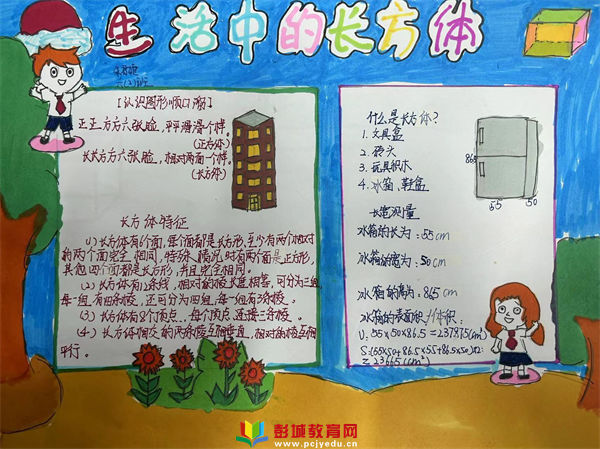 生活中的长方体
六(2)班
[认识图形顺口溜]
正正方方六张脸,平平滑滑个个样。
(正方体)
长长方方六张脸,相对两面一个样。
(长方体)
长方体特征
(1)长方体有6个面,每个面都是长方形,至少有两个相对
的两个面完全相同,特殊情况时有两个面是正方形,
其他四个面都是长方形,并且完全相同。
(2)长方体有12条棱,相对的棱长度相等,可分为三组,
每一组有四条棱,还可分为四组,每一组有3条棱。
(3)长方体有8个顶点,每个顶点连接三条棱。
(4)长方体相交的两条棱互相垂直,相对的棱互相
平行。
什么是长方体?
1.文具盒
2.砖头
3.玩具积木
4.冰箱、鞋盒
86.5
55
50
长宽测量
冰箱的长为:55cm
冰箱的宽为:50cm
冰箱的高为:86.5cm
冰箱的表面积/体积:
V:55×50×86.5=237875(cm³)
S:(55×50+86.5×55+86.5×50)×2
=23665(cm²)
彭城教育网
www.pcjyedu.cn